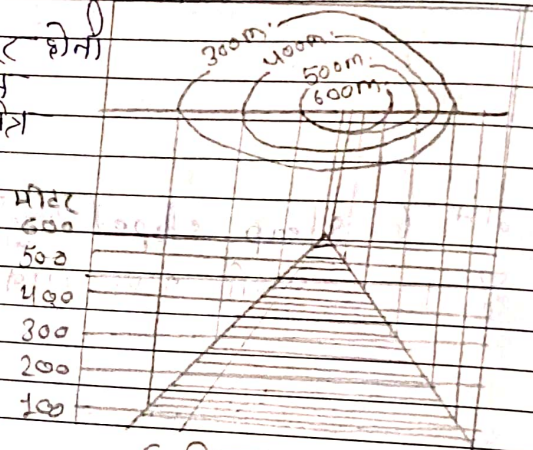 ट होती
300m.
400m.
500m.
600m.
मीटर
600
500
400
300
200
100